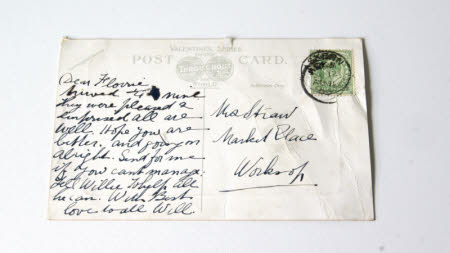 VALENTINES SERIES
POST CARD.
WORLD
Dear Florrie
Arrived
they were pleased &
surprised all are
well. Hope you are
better, and going on
alright. Send for me
if you cant manage.
Tell Willie to help all
he can. With Best
love to all Will.
Mrs Straw
Market Place
Worksop